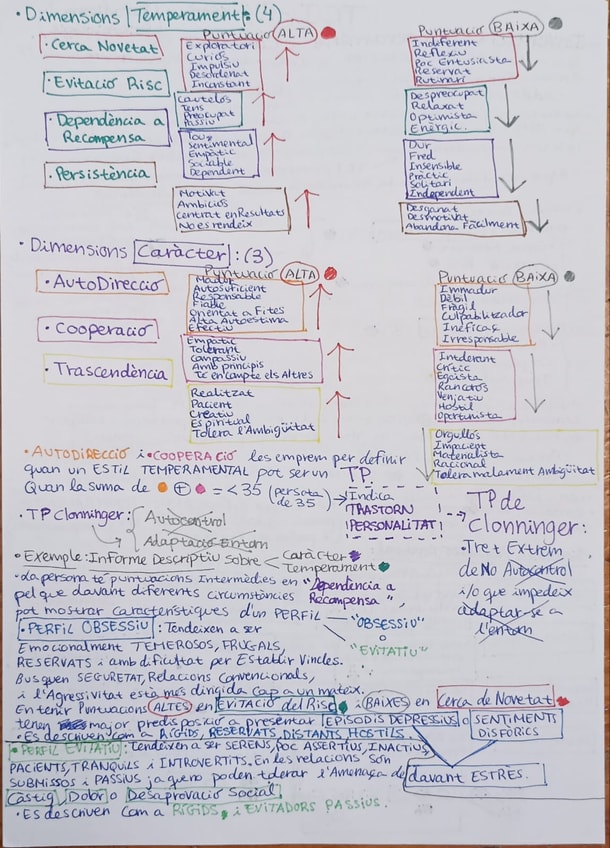 · Dimensions Temperament: (4)
Puntuació ALTA
Puntuació BAIXA
· Cerca Novetat
Exploratori
Curiós
Impulsiu
Desordenat
Inconstant
Indiferent
Reflexiu
Poc Entusiasta
Reservat
Rutinari
· Evitació Risc
Cautelós
Tens
Preocupat
Passiu
Despreocupat
Relaxat
Optimista
Enèrgic.
· Dependència a
Recompensa
Sentimental
Empàtic
Sociable
Dependent
Dur
Fred
Insensible
Pràctic
Solitari
Independent
· Persistència
Motivat
Ambiciós
Centrat en Resultats
No es rendeix
Desganat
Desmotivat
Abandona Fàcilment
· Dimensions Caràcter: (3)
Puntuació ALTA
Puntuació BAIXA
· AutoDirecció
Madur
Autosuficient
Responsable
Fiable
Orientat a Fites
Alta Autoestima
Efectiu
Immadur
Dèbil
Fràgil
Culpabilitzador
Ineficaç
Irresponsable
· Cooperació
Empàtic
Tolerant
Compassiu
Amb principis
Té en compte els Altres
Intolerant
Crític
Egoista
Rancorós
Venjatiu
Hostil
Oportunista
· Trascendència
Realitzat
Pacient
Creatiu
Espiritual
Tolera l'Ambigüitat
Orgullós
Impacient
Materialista
Racional
Tolera malament Ambigüitat
· AUTODIRECCIÓ i · COOPERACIÓ les emprem per definir
quan un ESTIL TEMPERAMENTAL pot ser un TP.
Quan la suma de + = < 35 (per sota de 35) → Indica
TRASTORN
PERSONALITAT
TP de
Clonninger:
· Tret Extrem
de No Autocontrol
i/o que impedeix
adaptar-se a
l'entorn
· TP Clonninger: Autocontrol
Adaptació Entorn
· Exemple: Informe Descriptiu sobre Caràcter
Temperament
· La persona té puntuacions Intermèdies en "Dependència a
Recompensa",
pel que davant diferents circumstàncies
pot mostrar característiques d'un PERFIL "OBSESSIU"
o
"EVITATIU"
· PERFIL OBSESSIU: Tendeixen a ser
Emocionalment TEMEROSOS, FRUGALS,
RESERVATS i amb dificultat per Establir Vincles.
Busquen SEGURETAT, Relacions Convencionals,
i l'Agressivitat està més dirigida cap a un mateix.
En tenir Puntuacions ALTES en EVITACIÓ del Risc i BAIXES en Cerca de Novetat
tenen major predisposició a presentar EPISODIS DEPRESSIUS o SENTIMENTS
DISFÒRICS
· Es descriuen com a RÍGIDS, RESERVATS, DISTANTS, HOSTILS.
· PERFIL EVITATIU: Tendeixen a ser SERENS, POC ASSERTIUS, INACTIUS,
PACIENTS, TRANQUILS i INTROVERTITS. En les relacions són
SUBMISSOS i PASSIUS ja que no poden tolerar l'Amenaça de
davant ESTRÈS.
Càstig, Dolor o Desaprovació Social.
· Es descriuen com a RÍGIDS, i EVITADORS PASSIUS.